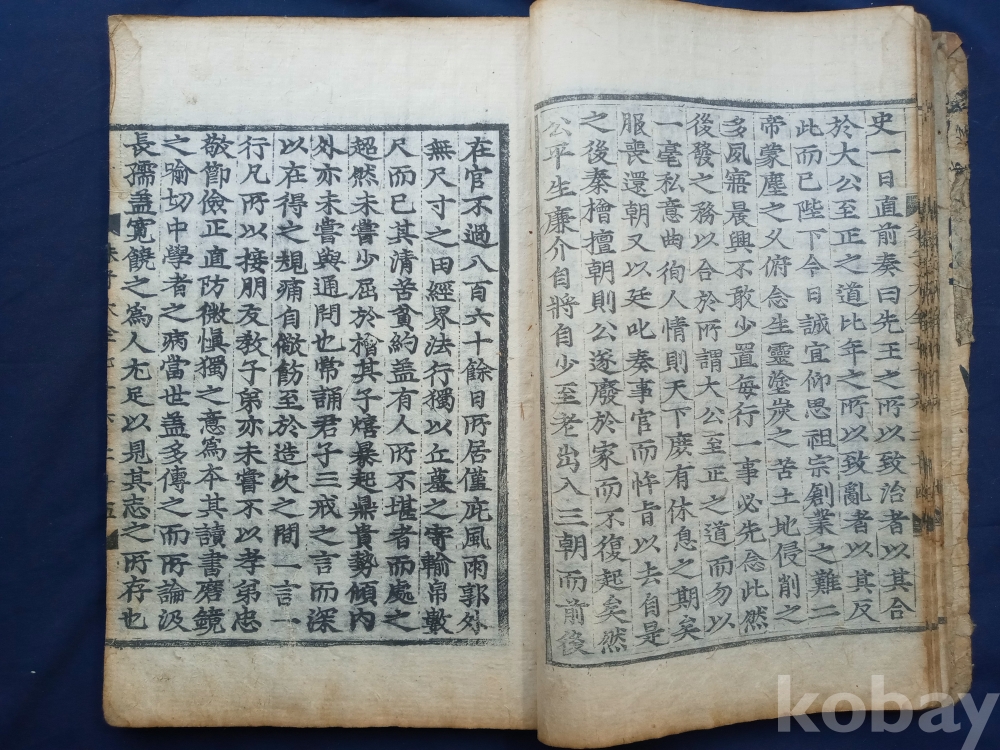 史一日直前奏曰先王之所以致治者以其合
於大公至正之道比年之所以致亂者以其反
此而已陛下今日誠宜仰思祖宗創業之難二
帝蒙塵之久俯念生靈塗炭之苦土地侵削之
多夙寤晨興不敢少置每行一事必先念此然
後發之務以合於所謂大公至正之道而勿以
一毫私意曲徇人情則天下庶有休息之期矣
服喪還朝又以廷叱奏事官而忤旨以去自是
之後秦檜擅朝則公遂廢於家而不復起矣然
公平生廉介自將自少至老出入三朝而前後
在官不過八百六十餘日所居僅庇風雨郭外
無尺寸之田經界法行獨以丘墓之寄輸帛數
尺而已其清苦貧約盖有人所不堪者而處之
超然未嘗少屈於檜其子熺暴起鼎貴勢傾內
外亦未嘗與通問也常誦君子三戒之言而深
以在得之規痛自儆飭至於造次之間一言一
行凡所以接朋友教子弟亦未嘗不以孝弟忠
敬節儉正直防微愼獨之意為本其讀書磨鏡
之喻切中學者之病當世盖多傳之而所論汲
長孺盖寬饒之為人尤足以見其志之所存也
kobay